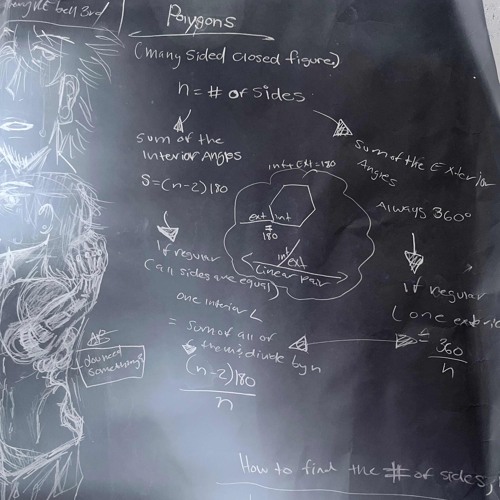 bell 3rd
Polygons
(many sided closed figure)
n = # of sides
sum of the
Interior Angles
S=(n-2)180
If regular
(all sides are equal)
one interior L
= sum of all of
them, divide by n
(n-2)180
n
int + Ext = 180
ext int
=
180
int
ext
Linear pair
sum of the Exterior
Angles
Always 360°
If regular
=
360
n
something
How to find the # of sides,